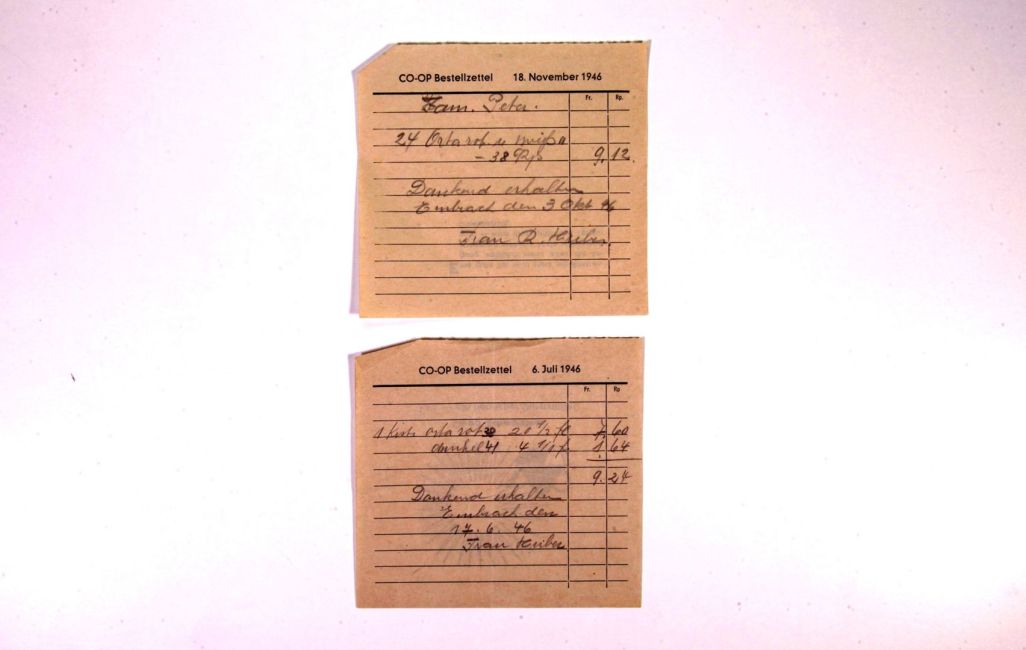 CO-OP Bestellzettel 18. November 1946
Fr. Rp.
Fam. Peter.
24 Orta rot u
- 38 Rp 9. 12.
Dankend erhalten
Embrach den 3 Okt 46
Frau R. Huber
CO-OP Bestellzettel 6. Juli 1946
Fr. Rp
1 Kiste Orta rot 38 20 1/2 fl 7. 60
dunkel 41 4 1/1 f 1. 64
9. 24
Dankend erhalten
Embrach den
17. 6. 46
Frau Huber